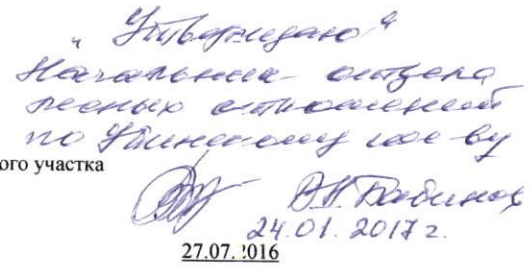 "Утверждаю"
Начальник отдела
лесных отношений
по Уинскому лес-ву
ого участка
24.01.2017г.
27.07.2016